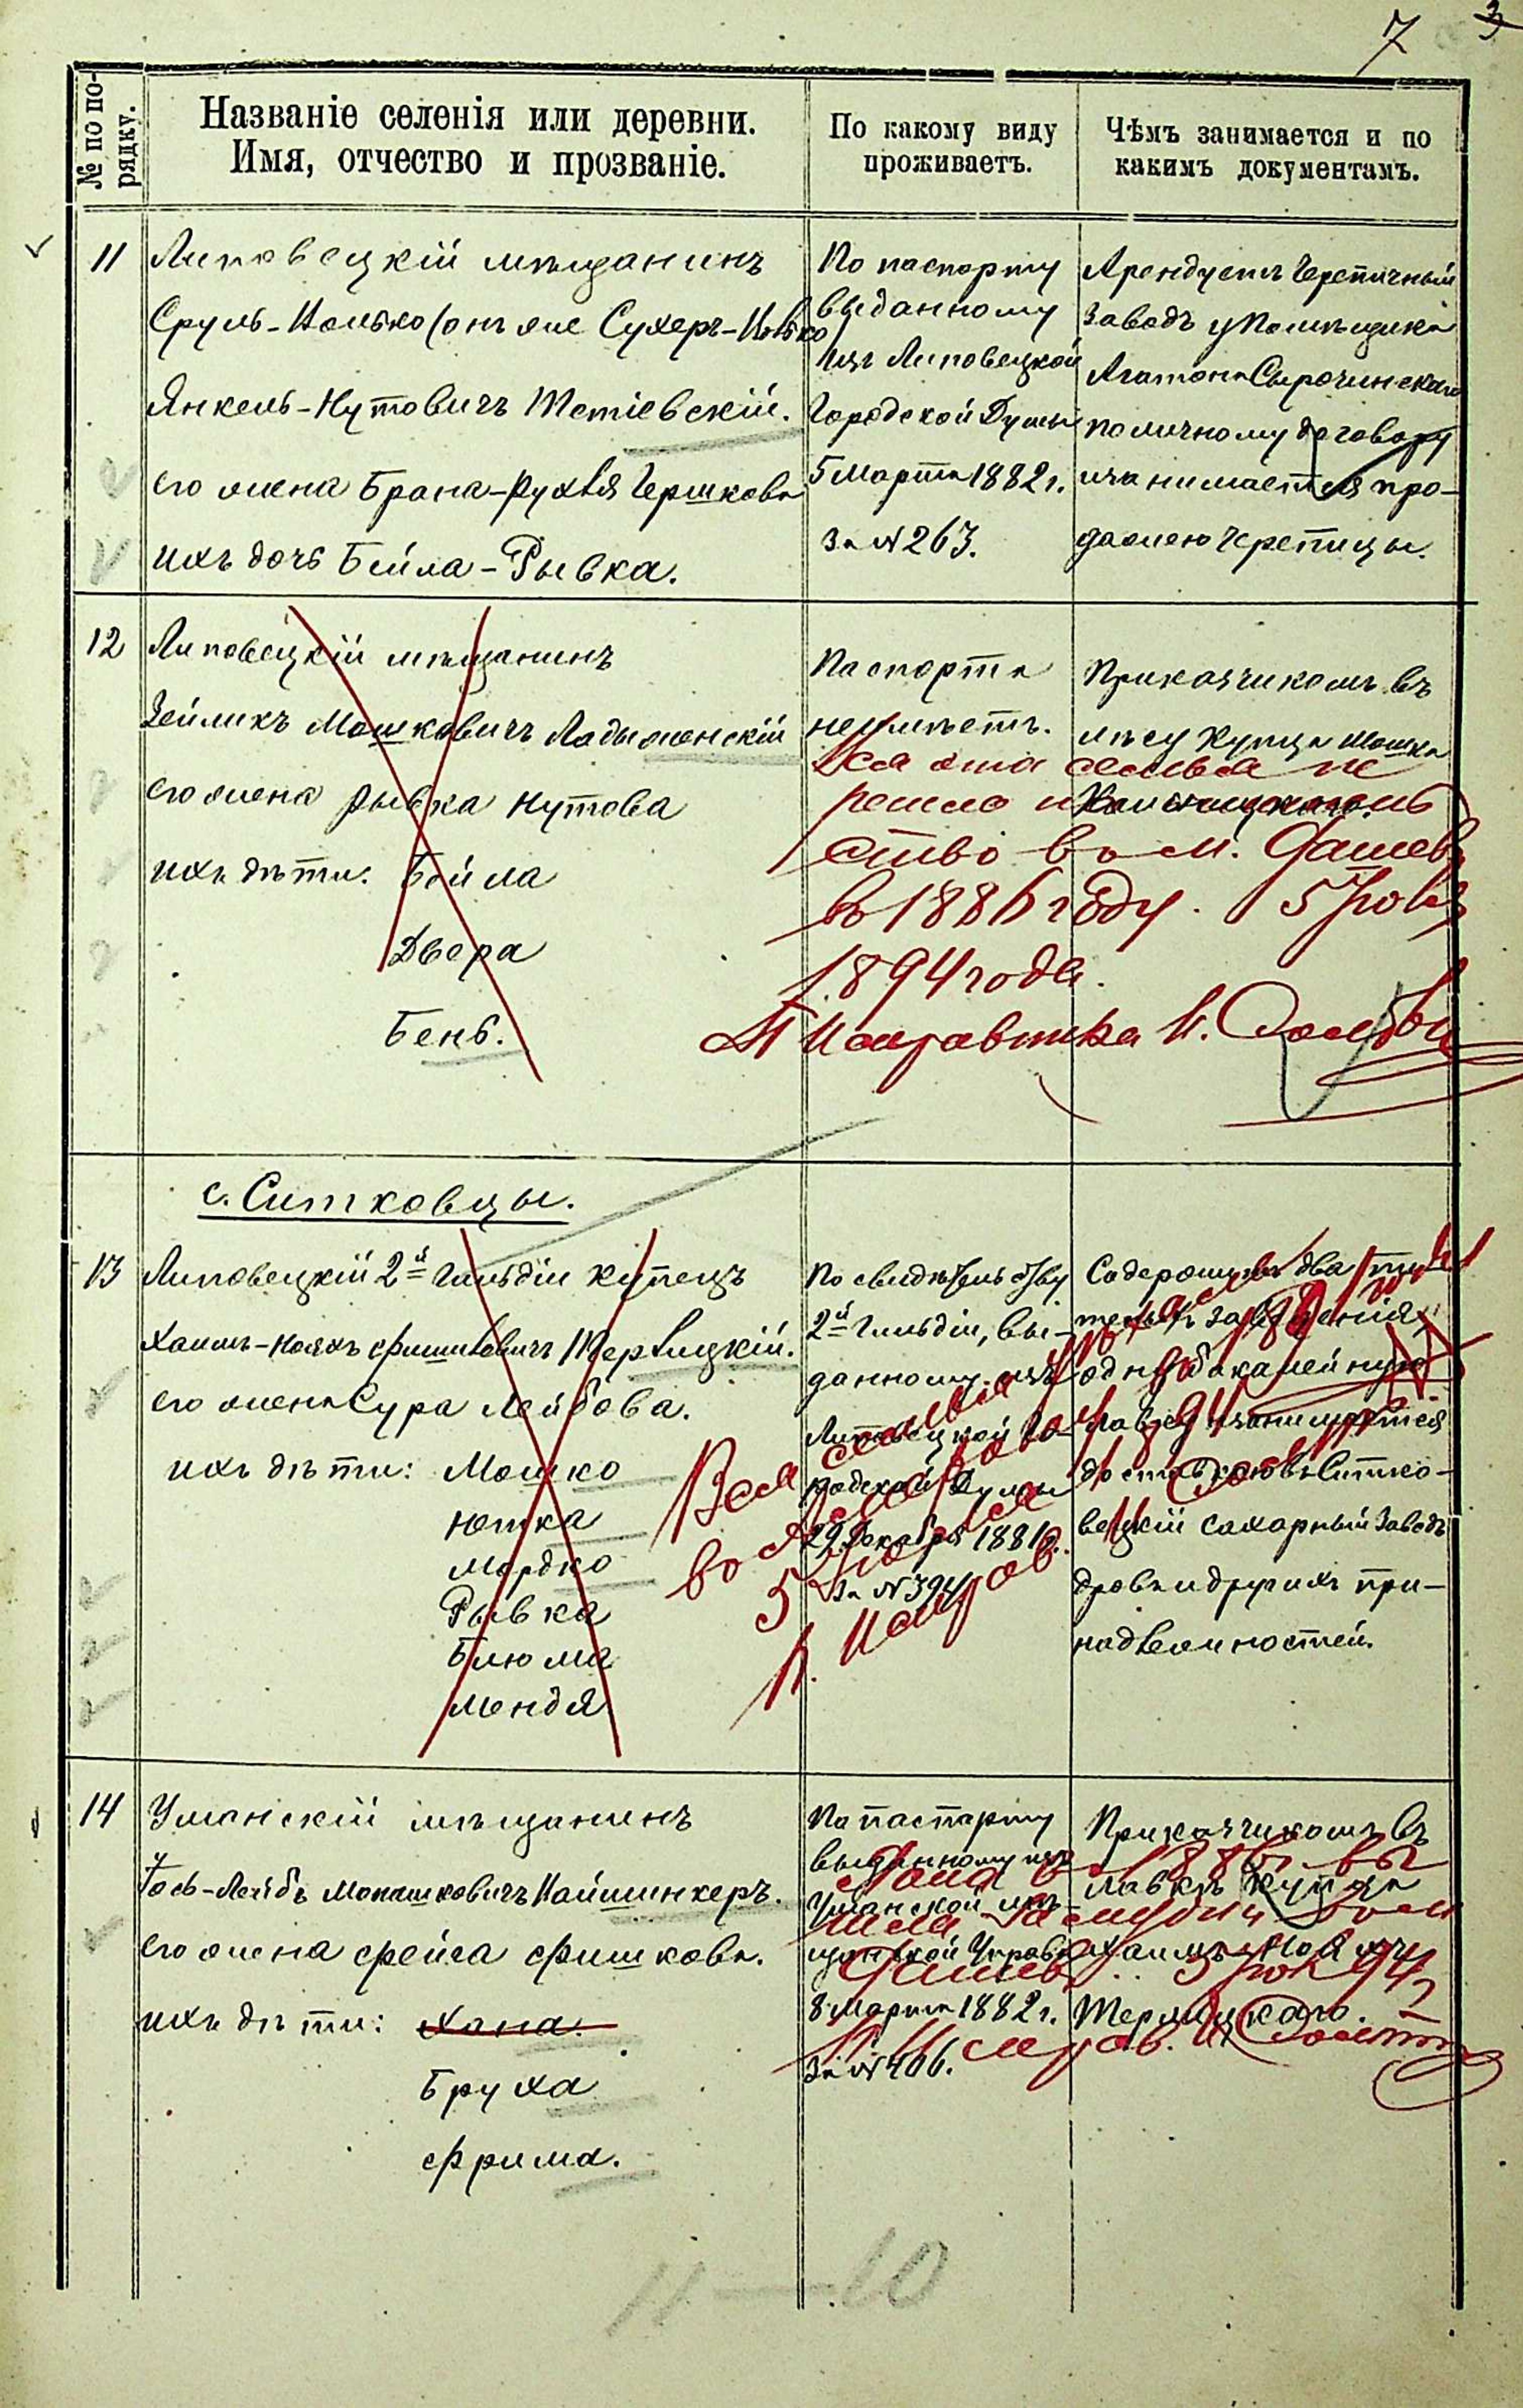 7 3
№ по порядку.
Названіе селенія или деревни.
Имя, отчество и прозваніе.
По какому виду
проживаетъ.
Чѣмъ занимается и по
какимъ документамъ.
11
Липовецкій мѣщанинъ
Сруль-Иолько (онъ же Сухеръ-
Янкель-Нутовичъ Тетіевскій.
его жена Брана-Рухля Гершкова
ихъ дочь Бейла-Рывка.
По паспорту
выданному
изъ Липовецкой
Городской Думы
5 Марта 1882 г.
за № 263.
Арендуетъ Черепичный
заводъ у помѣщика
Агатона Сырочинскаго
по личному договору
и занимается про-
дажею Черепицы.
12
Липовецкій мѣщанинъ
Зейликъ Мошковичъ Ладыженскій
его жена Рывка Нутова
ихъ дѣти: Бейла
Двера
Бень.
Паспорта
не имѣетъ.
Приказчикомъ въ
лѣсу Купца Мошка
Вся эта семья пе
решла
ство въ м. Дашевъ
въ 1886 году. 5 Нояб
1894 года.
П Исправника И.
с. Ситковцы.
13
Липовецкій 2й Гильдіи Купецъ
Хаимъ-Нояхъ Фишковичъ Терлицкій.
его жена Сура Лейбова.
ихъ дѣти: Мошко
Ютка
Мордко
Рывка
Блюма
Мендя
По свидѣтельству
2й Гильдіи, вы-
данному изъ
Липовецкой Го-
родской Думы
29 Декабря 1881 г.
за № 394
Содержитъ два пи-
тейныхъ заведенія,
одну бакалейную
лавку и занимается
доставкою въ Ситко-
вецкій сахарный заводъ
дровъ и другихъ при-
надлежностей.
Вся семья
5 Ноября 94
П. Исправ.
14
Уманскій мѣщанинъ
Іось-Лейбъ Монашковичъ Наймингеръ.
его жена Фейга Фишкова.
ихъ дѣти: Хана.
Бруха
Фрима.
По паспорту
выданному изъ
Уманской мѣ-
щанской Управы
8 Марта 1882 г.
за № 406.
Приказчикомъ въ
лавкѣ Купца
Хаимъ-Нояхъ
Терлицкаго.
Хана въ 1886 вы
шла замужъ въ м
Дашевъ. 5 Ноя 94
П Исправ. И
11 — 10